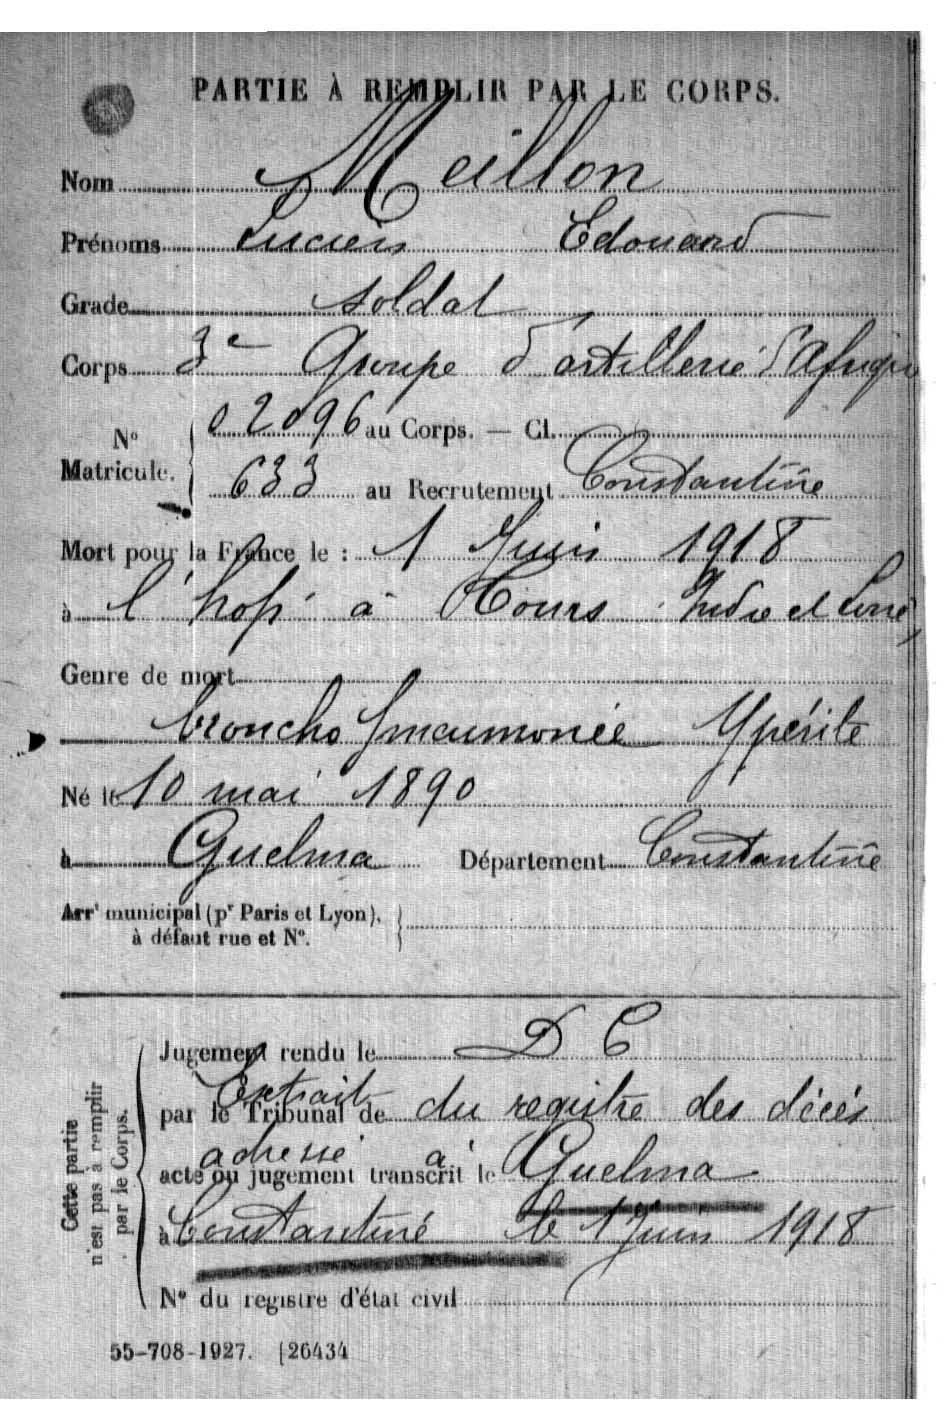 PARTIE À REMPLIR PAR LE CORPS.
Nom Meillon
Prénoms Lucien Edouard
Grade soldat
Corps 3e Groupe d'artillerie d'Afrique
N° Matricule. 02096 au Corps. — Cl.
633 au Recrutement Constantine
Mort pour la France le : 1 Juin 1918
à l'hop à Tours Indre et Loire
Genre de mort
broncho pneumonie Ypérite
Né le 10 mai 1890
à Guelma Département Constantine
Arrt municipal (pr Paris et Lyon),
à défaut rue et N°.
Cette partie
n'est pas à remplir
par le Corps.
Jugement rendu le D C
Extrait
par le Tribunal de du registre des décès
adressé à
acte ou jugement transcrit le Guelma
à Constantine le 1 Juin 1918
N° du registre d'état civil
55-708-1927. [26434